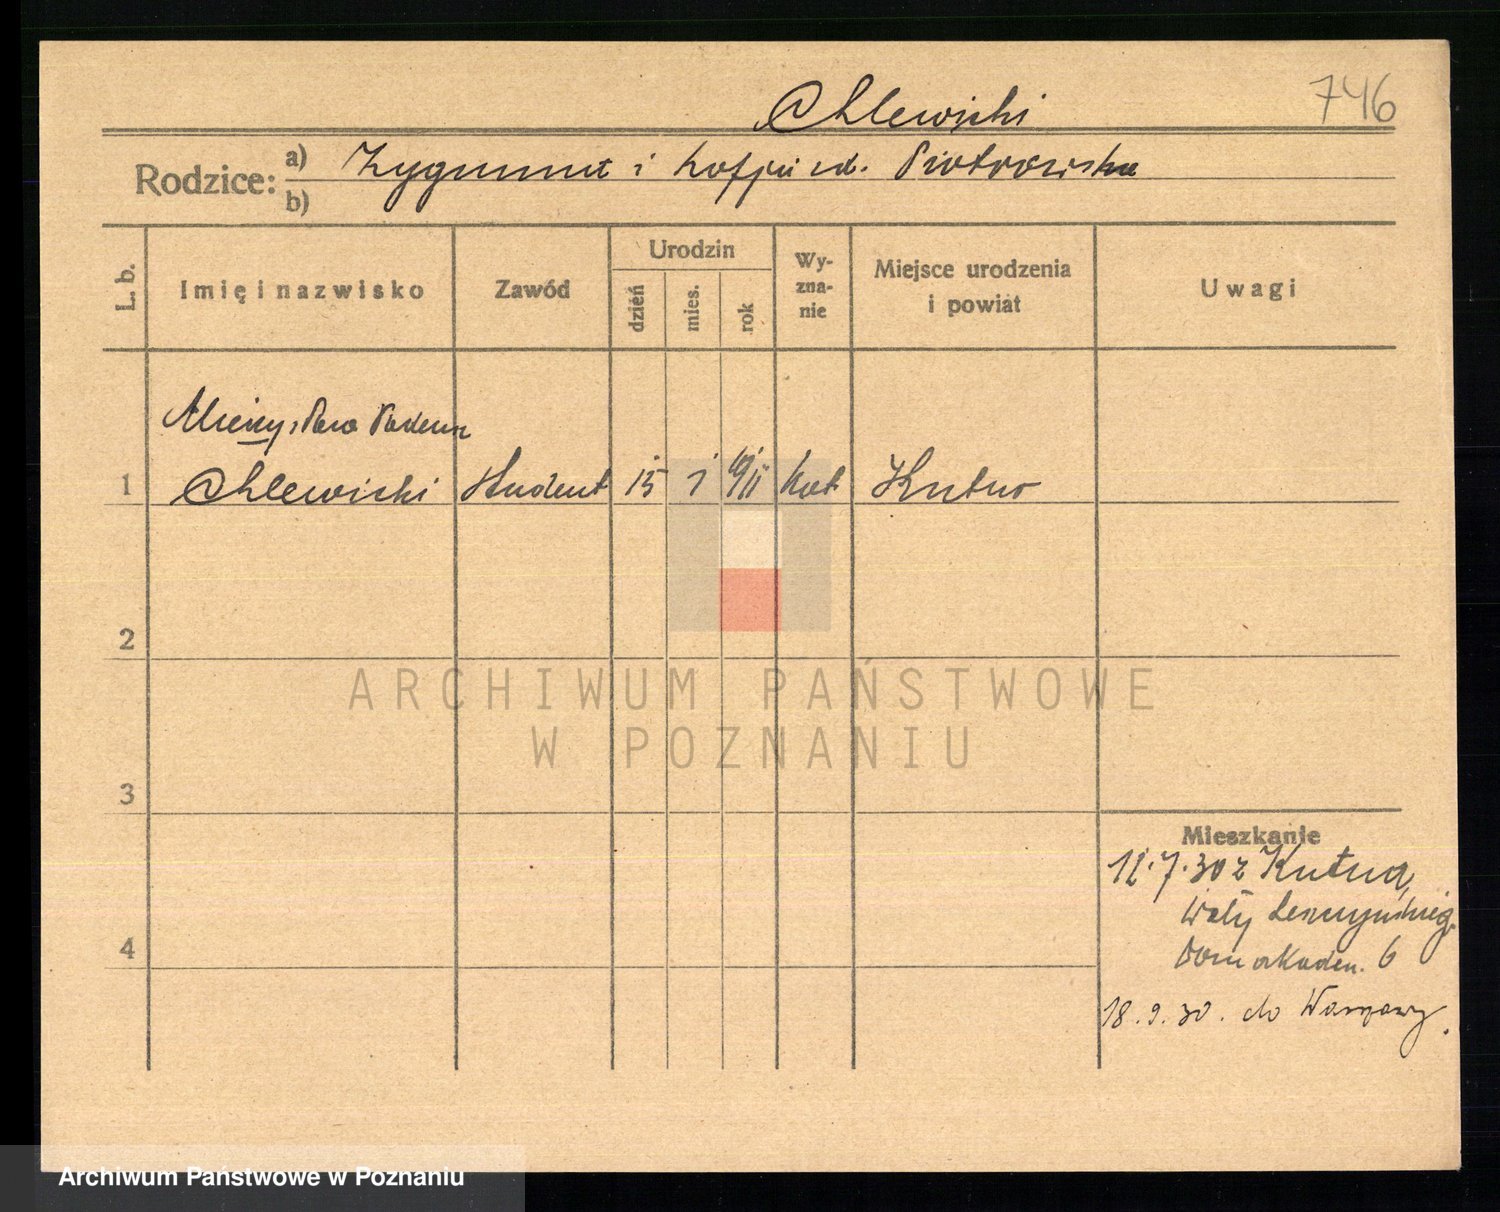 Chlewicki
746
Rodzice: a) Zygmunt i Zofja z d. Piotrowska
b)
L. b.
Imię i nazwisko
Zawód
Urodzin
dzień
mies.
rok
Wy-
zna-
nie
Miejsce urodzenia
i powiat
Uwagi
Mieczysław Tadeusz
1 Chlewicki student 15 1 1911 kat Kutno
2
3
4
Mieszkanie
11.7.30 z Kutna,
Wały Leszczyńskieg.
Dom akadem. 6
18.9.30. do Warszawy.
ARCHIWUM PAŃSTWOWE
W POZNANIU
Archiwum Państwowe w Poznaniu